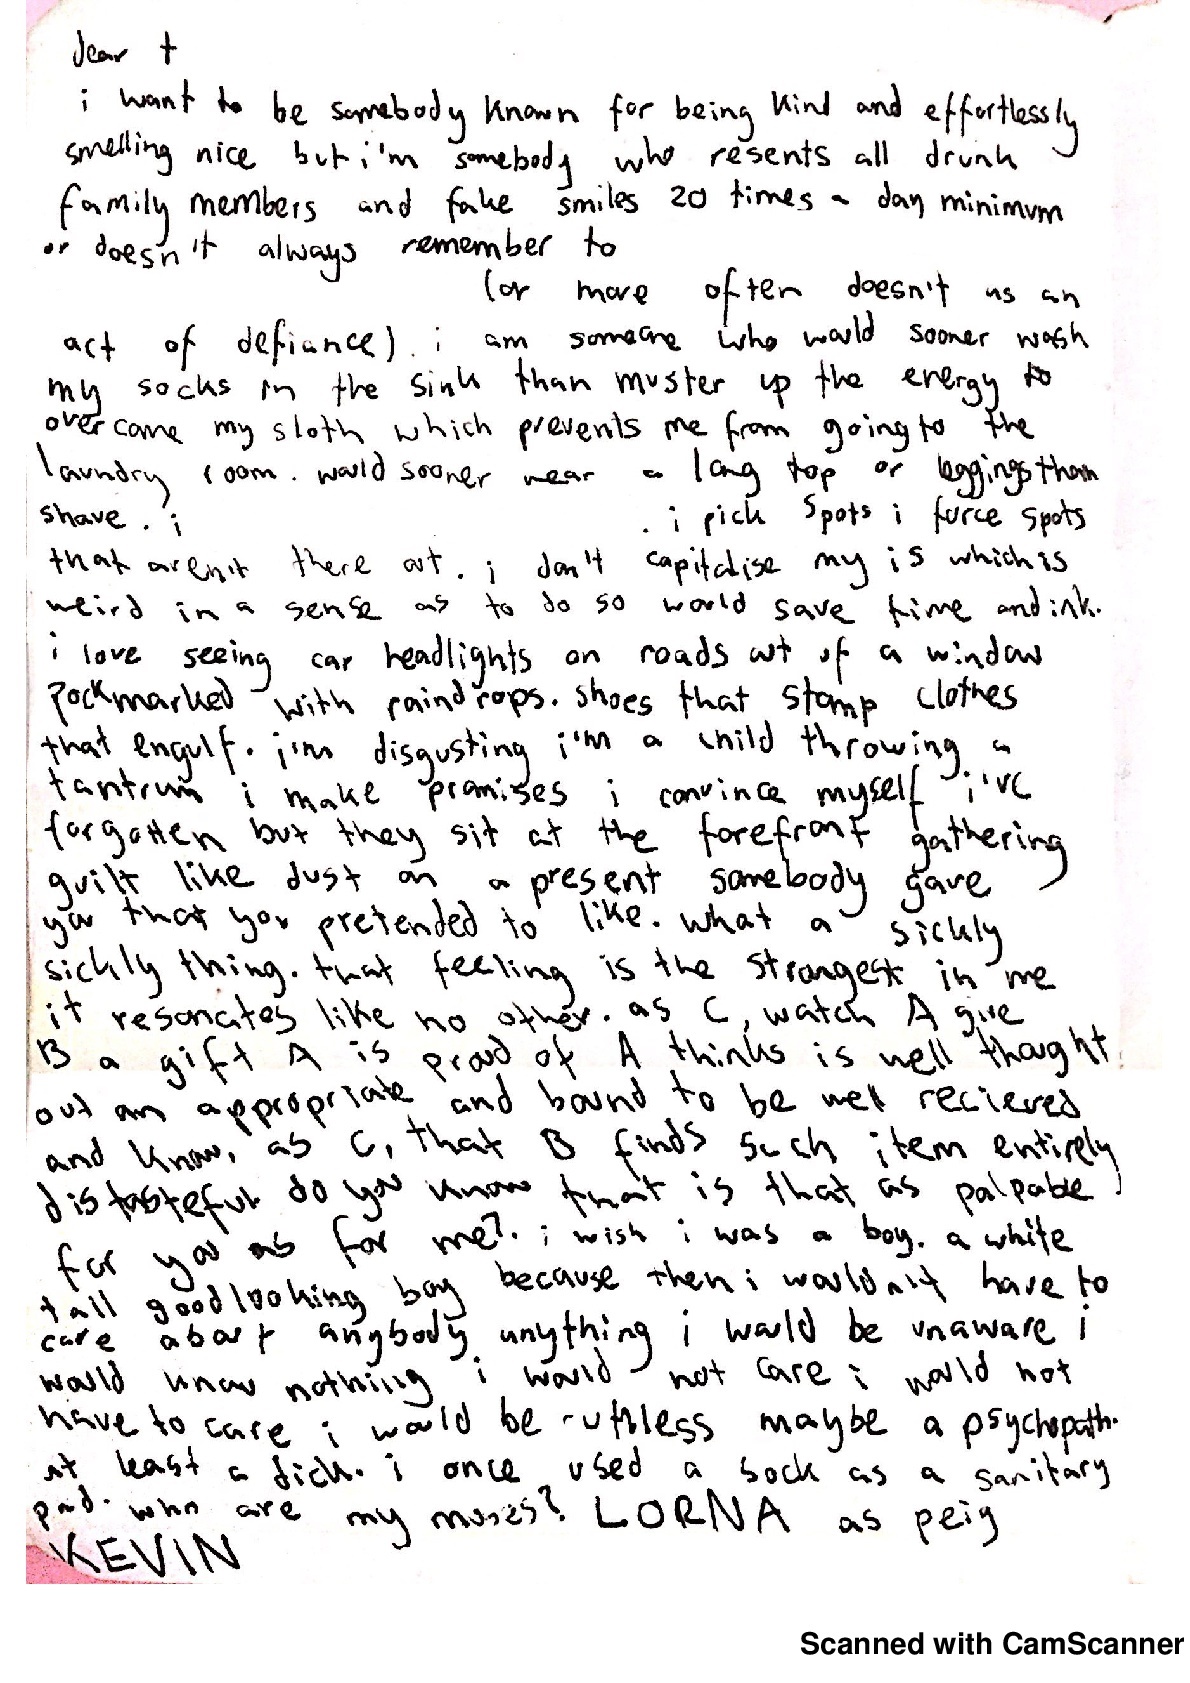 dear t
i want to be somebody known for being kind and effortlessly
smelling nice but i'm somebody who resents all drunk
family members and fake smiles 20 times a day minimum
or doesn't always remember to
(or more often doesn't as an
act of defiance). i am someone who would sooner wash
my socks in the sink than muster up the energy to
overcome my sloth which prevents me from going to the
laundry room. would sooner wear a long top or leggings than
shave. i
. i pick spots i force spots
that aren't there out. i don't capitalise my is which is
weird in a sense as to do so would save time and ink.
i love seeing car headlights on roads out of a window
pockmarked with raindrops. shoes that stomp clothes
that engulf. i'm disgusting i'm a child throwing a
tantrum i make promises i convince myself i've
forgotten but they sit at the forefront gathering
guilt like dust on a present somebody gave
you that you pretended to like. what a sickly
sickly thing. that feeling is the strongest in me
it resonates like no other. as C, watch A give
B a gift A is proud of A thinks is well thought
out an appropriate and bound to be well recieved
and know, as C, that B finds such item entirely
distasteful do you know that is that as palpable
for you as for me?. i wish i was a boy. a white
tall goodlooking boy because then i wouldn't have to
care about anybody anything i would be unaware i
would know nothing i would not care i would not
have to care i would be ruthless maybe a psychopath.
at least a dick. i once used a sock as a sanitary
pad. who are my muses? LORNA as peig
KEVIN
Scanned with CamScanner